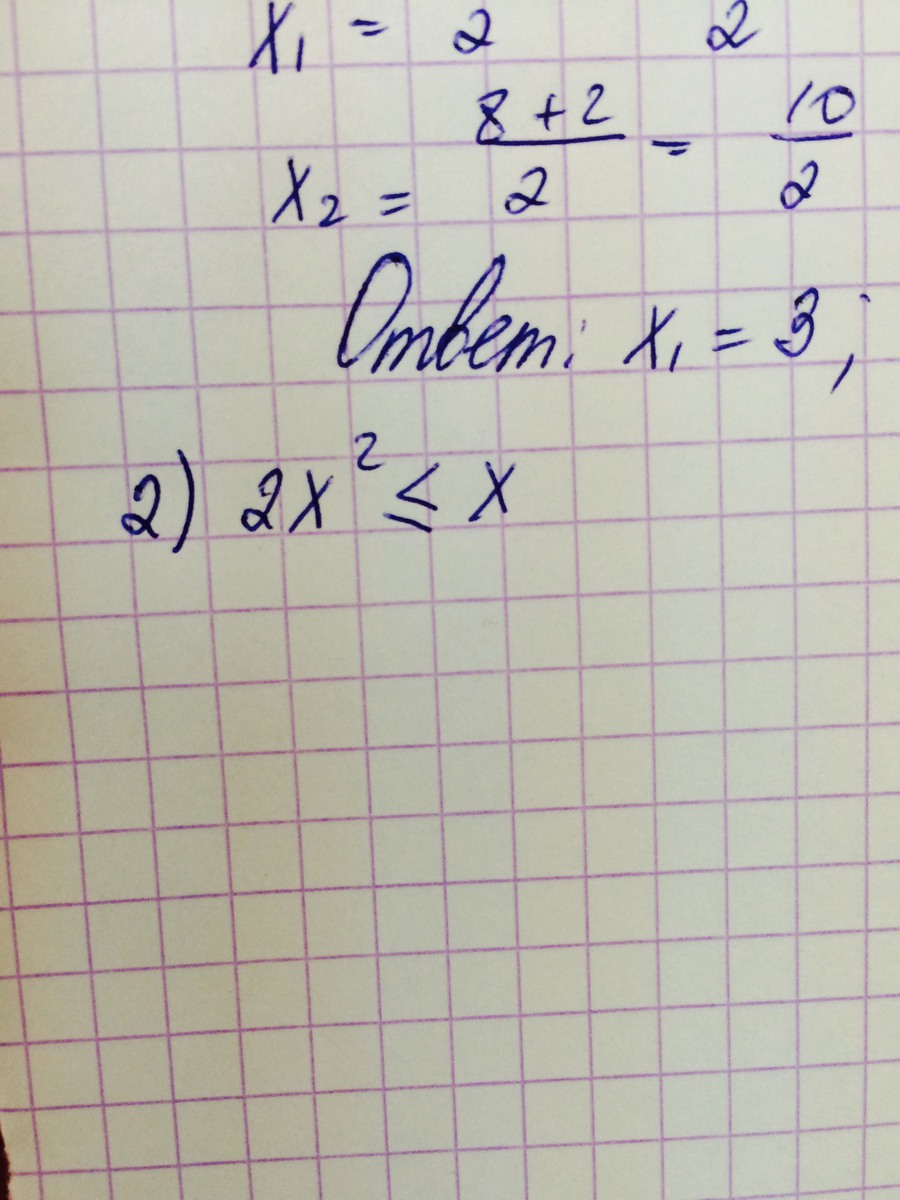 x₁ = 2 2
x₂ = (8 + 2)/2 = 10/2
Ответ: x₁ = 3;
2) 2x² ≤ x